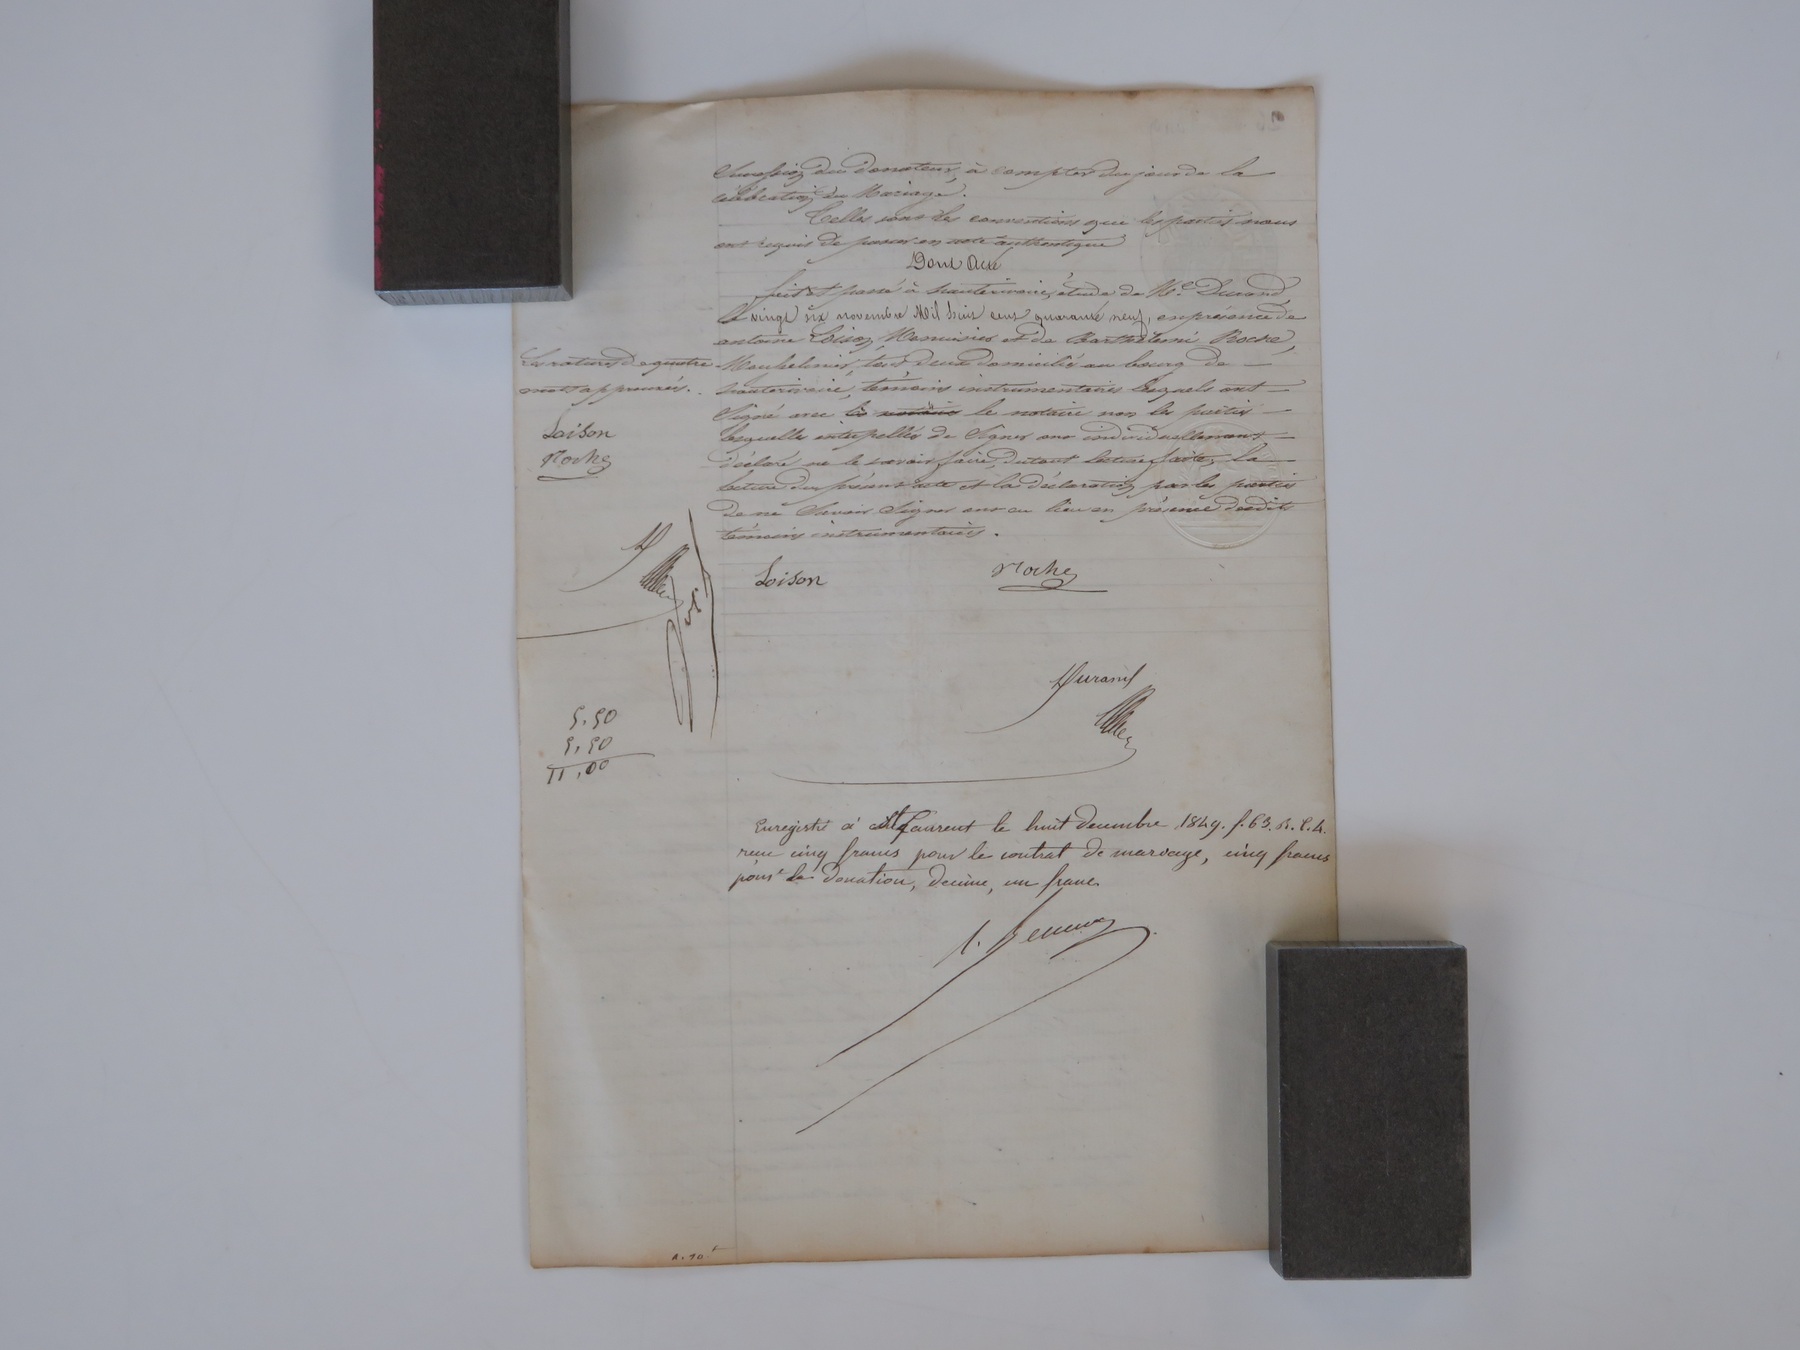 Succession du donateur, à compter du jour de la
célébration du Mariage.
Telles sont les conventions que les parties nous
ont requis de passer en acte authentique
Dont Acte
fait et passé à hauterivoire, étude de Me. Durand,
le vingt six novembre Mil huit cent quarante neuf, en présence de
antoine Loison, Menuisier et de Barthélemi Roche,
tous deux domiciliés au bourg de
hauterivoire, témoins instrumentaires lesquels ont
Signé avec le notaire non les parties
lesquelles interpellés de Signer ont individuellement
déclaré ne le savoir faire, du tout lecture faite, la
lecture du présent acte et la déclaration par les parties
de ne Savoir Signer ont eu lieu en présence desdits
témoins instrumentaires.
Les ratures de quatre
mots approuvés.
Loison
Roche
Loison
Roche
Durand
5,50
5,50
11,00
Enregistré à St Laurent le huit decembre 1849. f. 63. R. C. 4.
recu cinq francs pour le contrat de mariage, cinq francs
pour la donation, decime, un franc